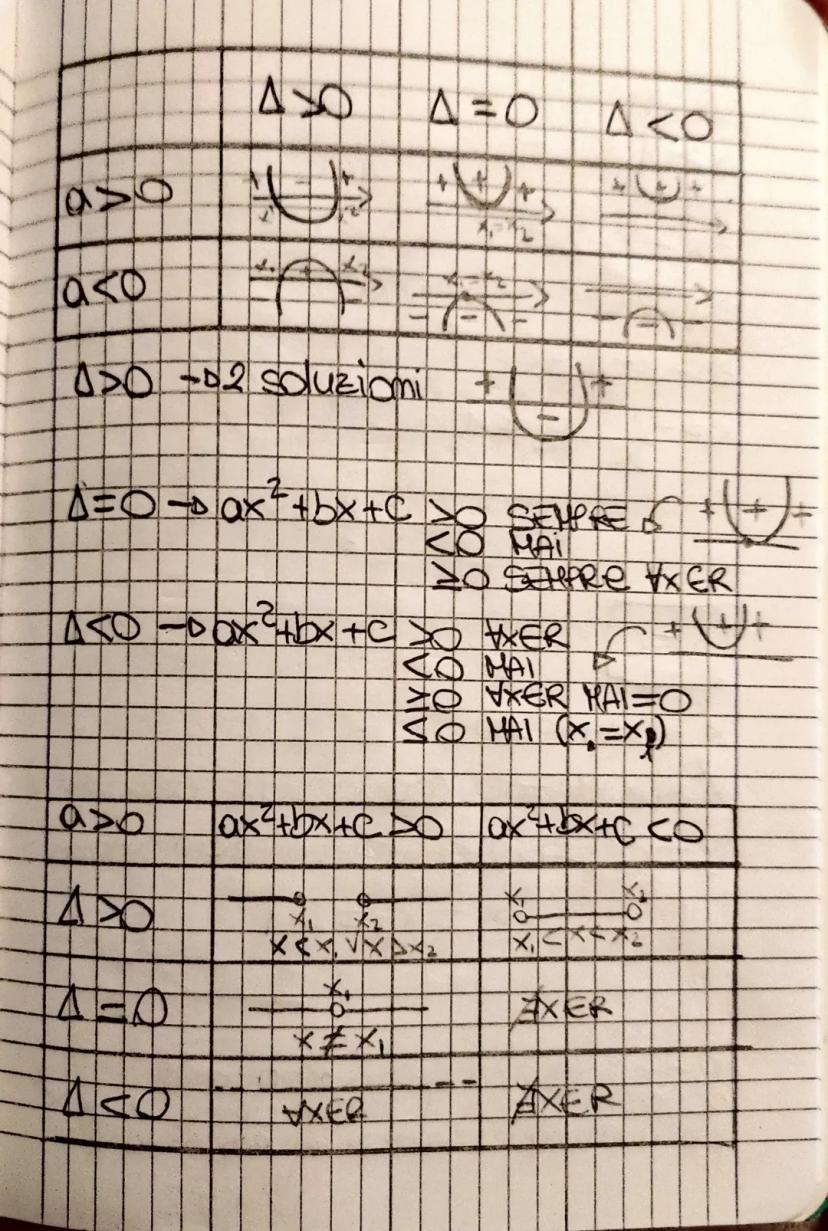 Δ>0 Δ=0 Δ<0
a>0 + - + x₁ x₂ + + + x₁=x₂ + + +
a<0 x₁ + x₂ - - x₁=x₂ - - - - - -
Δ>0 → 2 soluzioni + - +
Δ=0 → ax²+bx+c >0 SEMPRE + + +
<0 MAi
≥0 SEMPRE ∀x∈R
Δ<0 → ax²+bx+c >0 ∀x∈R + + +
<0 MAI
≥0 ∀x∈R MAI=0
≤0 MAI (x₁=x₂)
a>0 ax²+bx+c>0 ax²+bx+c<0
Δ>0 x₁ x₂ x₁ x₂
x<x₁ ∨ x>x₂ x₁<x<x₂
Δ=0 x₁ ∄x∈R
x≠x₁
Δ<0 ∀x∈R ∄x∈R